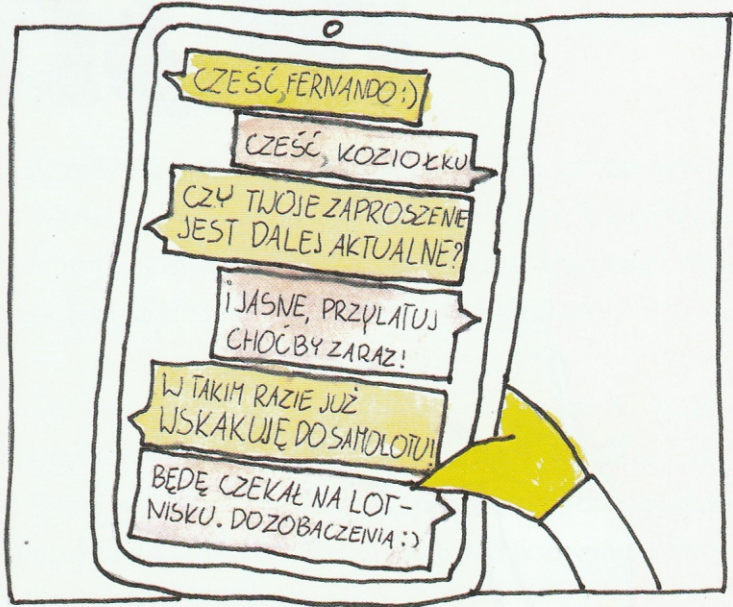 CZEŚĆ, FERNANDO :)
CZEŚĆ, KOZIOŁKU
CZY TWOJE ZAPROSZENIE
JEST DALEJ AKTUALNE?
¡JASNE, PRZYLATUJ
CHOĆBY ZARAZ!
W TAKIM RAZIE JUŻ
WSKAKUJĘ DO SAMOLOTU!
BĘDĘ CZEKAŁ NA LOT-
NISKU. DO ZOBACZENIA :)